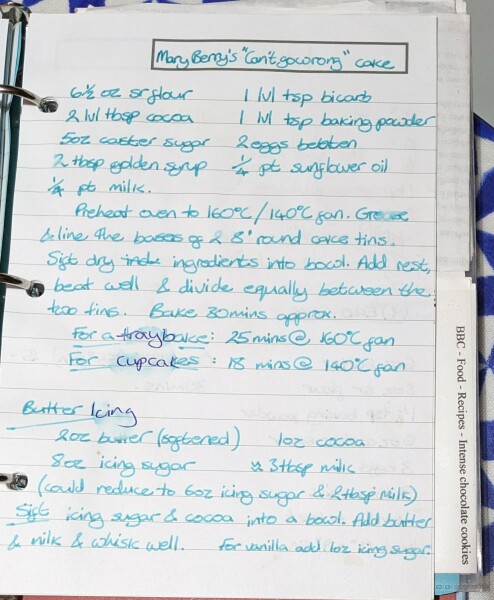 Mary Berry's "Can't go wrong" cake
6½ oz sr flour    1 lvl tsp bicarb
2 lvl tbsp cocoa    1 lvl tsp baking powder
5oz caster sugar    2 eggs beaten
2 tbsp golden syrup    ¼ pt sunflower oil
¼ pt milk.
Preheat oven to 160°C/140°C fan. Grease
& line the bases of 2 8" round cake tins.
Sift dry ingredients into bowl. Add rest,
beat well & divide equally between the
two tins. Bake 30mins approx.
For a traybake: 25 mins @ 160°C fan
For cupcakes: 18 mins @ 140°C fan
Butter Icing
2oz butter (softened)    1oz cocoa
8oz icing sugar    3tbsp milk
(could reduce to 6oz icing sugar & 2tbsp milk)
Sift icing sugar & cocoa into a bowl. Add butter
& milk & whisk well.    For vanilla add 1oz icing sugar.
BBC - Food - Recipes - Intense chocolate cookies